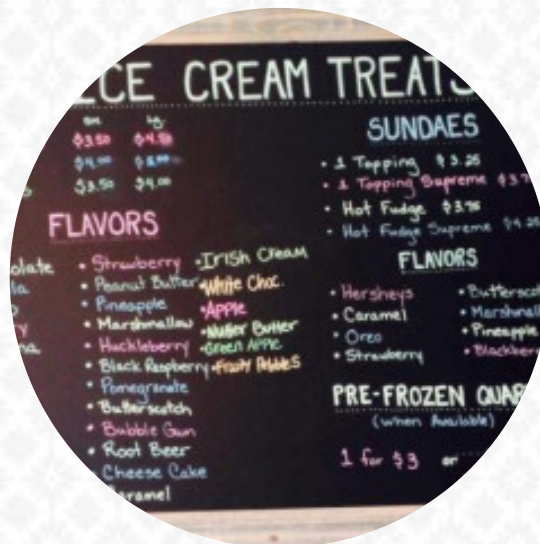 ICE CREAM TREATS
sm lg
$3.50 $4.50
$4.00
$3.50 $4.00
FLAVORS
• Strawberry
• Peanut Butter
• Pineapple
• Marshmallow
• Huckleberry
• Black Raspberry
• Pomegranate
• Butterscotch
• Bubble Gum
• Root Beer
Cheese Cake
• Irish Cream
• White Choc.
• Apple
• Nutter Butter
• Green Apple
• Fruity Pebbles
SUNDAES
• 1 Topping $3.25
• 1 Topping Supreme
• Hot Fudge $3.75
• Hot Fudge Supreme $4.25
FLAVORS
• Hersheys
• Caramel
• Oreo
• Strawberry
• Pineapple
PRE-FROZEN
(when Available)
1 for $3 or